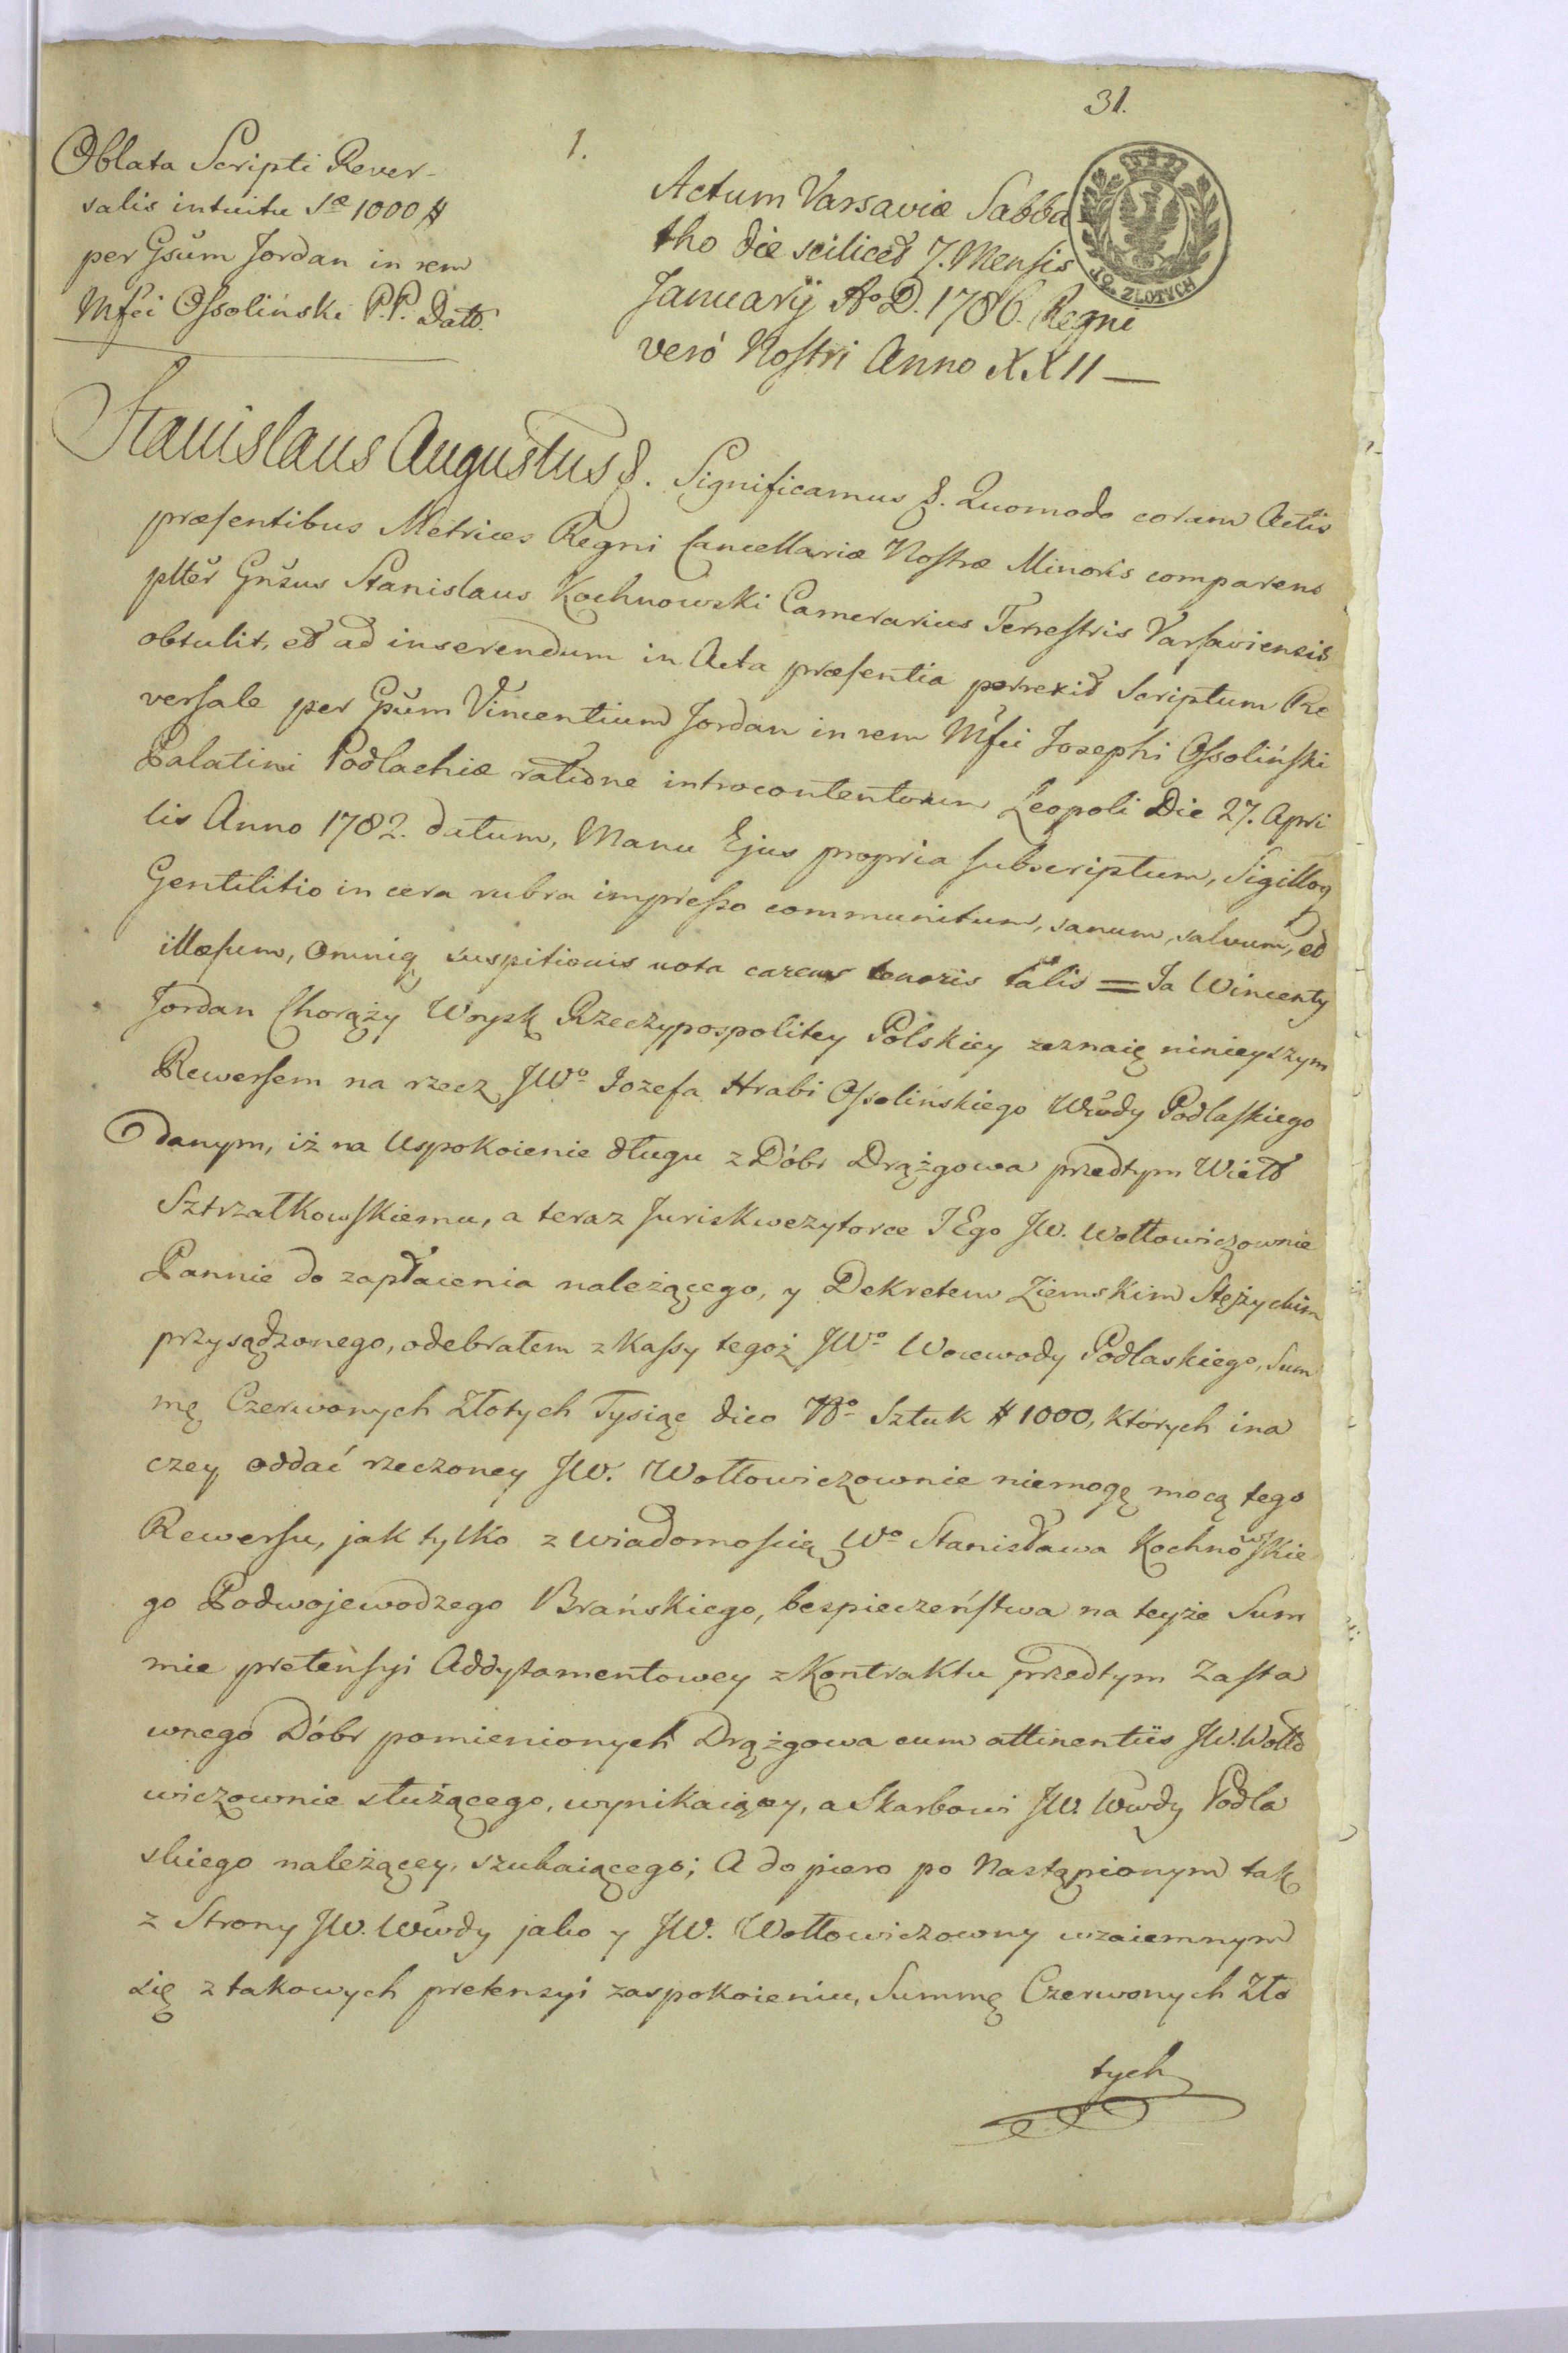 31.
1.
Oblata Scripti Rever-
salis intuitu Sæ 1000 #
per Gsŭm Jordan in rem
Mfci Ossoliński P.P. Datt.
Actum Varsaviæ Sabba
tho die scilicet 7. Mensis
Januarÿ Ao D. 1786. Regni
veró Nostri Anno XXII —
10. ZŁOTYCH
Stanislaus Augustus &. Significamus &. Quomodo coram Actis
præsentibus Metrices Regni Cancellariæ Nostræ Minoris comparens
plter Gnsus Stanislaus Kochnowski Camerarius Terrestris Varsaviensis
obtulit, et ad inserendum in Acta præsentia porrexit Scriptum Re
versale per Gsum Vincentium Jordan in rem Mfci Josephi Ossoliński
Palatini Podlachiæ ratione introcontentorum Leopoli Die 27. Apri
lis Anno 1782. datum, Manu Ejus propria subscriptum, Sigilloq
Gentilitio in cera rubra impresso communitum, sanum, salvum, et
illæsum, omniq suspitionis nota carens tenoris talis = Ja Wincenty
Jordan Chorąży Woysk Rzeczypospolitey Polskiey zeznaię ninieyszym
Rewersem na rzecz JWo Jozefa Hrabi Ossolińskiego Wwdy Podlaskiego
danym, iż na Uspokoienie długu z Dóbr Drążgowa przedtym Wielb
Sztrzałkowskiemu, a teraz Juriskwezytorce JEgo JW. Wołłowiczownie
Pannie do zapłacenia należącego, y Dekretem Ziemskim Stężyckim
przysądzonego, odebrałem z Kassy tegoż JWo Woiewody Podlaskiego, Sum
mę Czerwonych Złotych Tysiąc dico No Sztuk # 1000, których ina
czey oddać rzeczoney JW. Wołłowiczownie niemogę mocą tego
Rewersu, jak tylko z wiadomością Wo Stanisława Kochnowskie
go Podwojewodzego Brańskiego, bespieczeństwa na teyże Sum
mie pretensyi Addytamentowey z Kontraktu przedtym Zasta
wnego Dóbr pomienionych Drążgowa cum attinentiis JW. Wołło
wiczownie służącego, wynikaiącey, a Skarbowi JW. Wwdy Podla
skiego należącey, szukaiącego; A dopiero po Nastąpionym tak
z Strony JW. Wwdy jako y JW. Wołłowiczowny wzaiemnym
się z takowych pretensyi zaspokoieniu, Summę Czerwonych Zło
tych